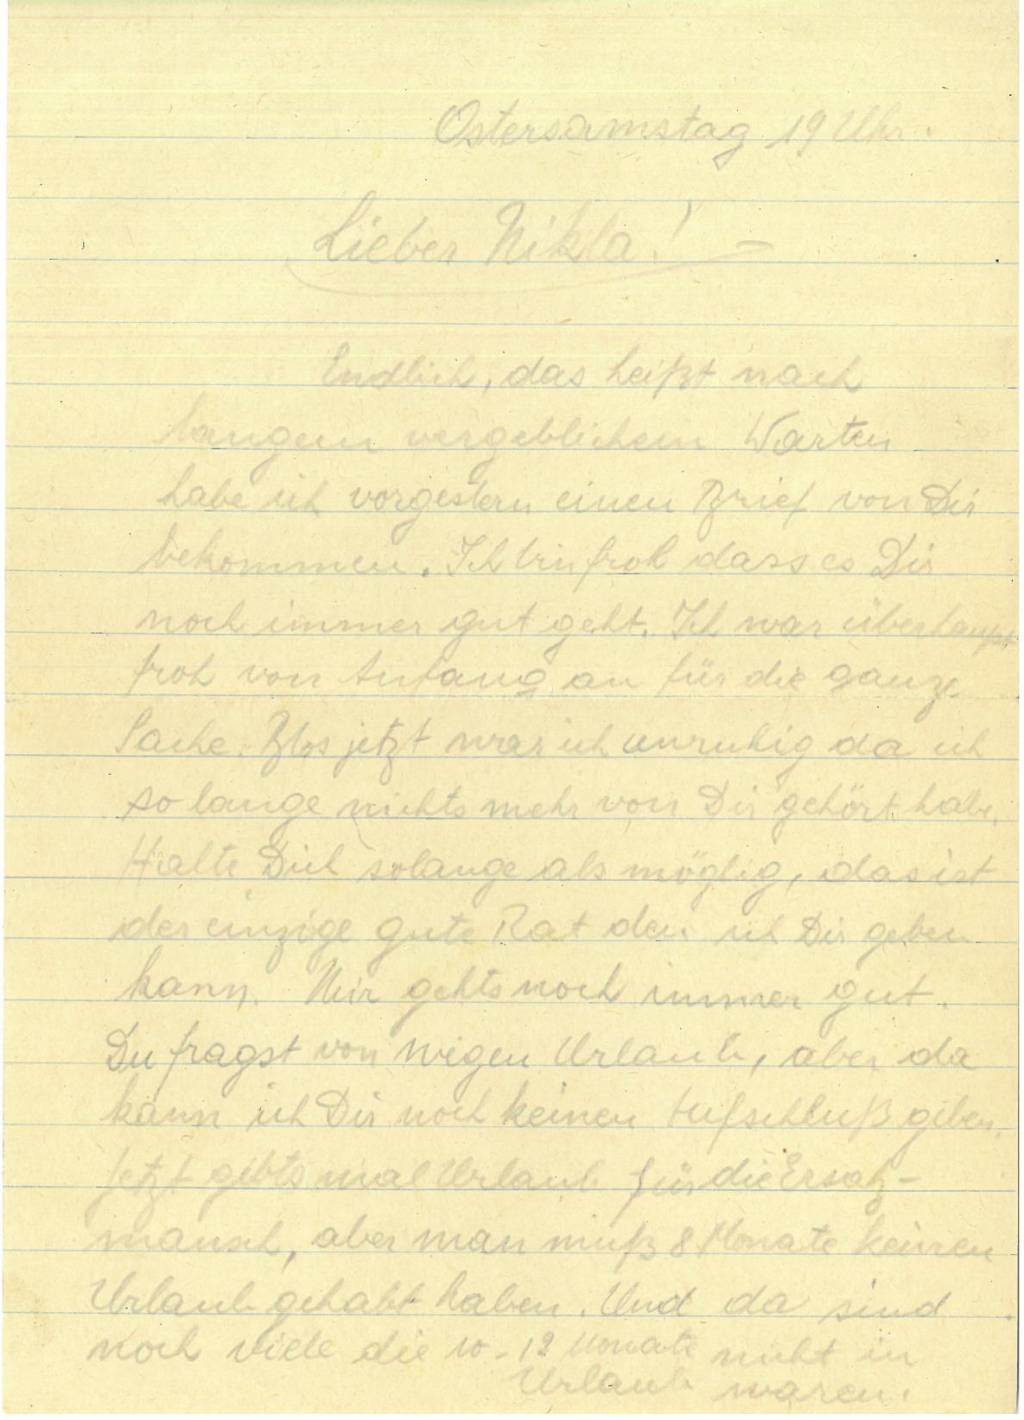 Ostersamstag 19 Uhr.
Lieber Nikla! -
Endlich, das heißt nach
langem vergeblichem Warten
habe ich vorgestern einen Brief von Dir
bekommen. Ich bin froh dass es Dir
noch immer gut geht. Ich war überhaupt
froh von Anfang an für die ganze
Sache. Blos jetzt war ich unruhig da ich
so lange nichts mehr von Dir gehört habe.
Halte Dich solange als möglig, das ist
der einzige gute Rat den ich Dir geben
kann. Mir gehts noch immer gut.
Du fragst von wegen Urlaub, aber da
kann ich Dir noch keinen Aufschluß geben.
Jetzt gibts mal Urlaub für die Ersatz-
mansch, aber man muß 8 Monate keinen
Urlaub gehabt haben. Und da sind
noch viele die 10-12 Monate nicht in
Urlaub waren.